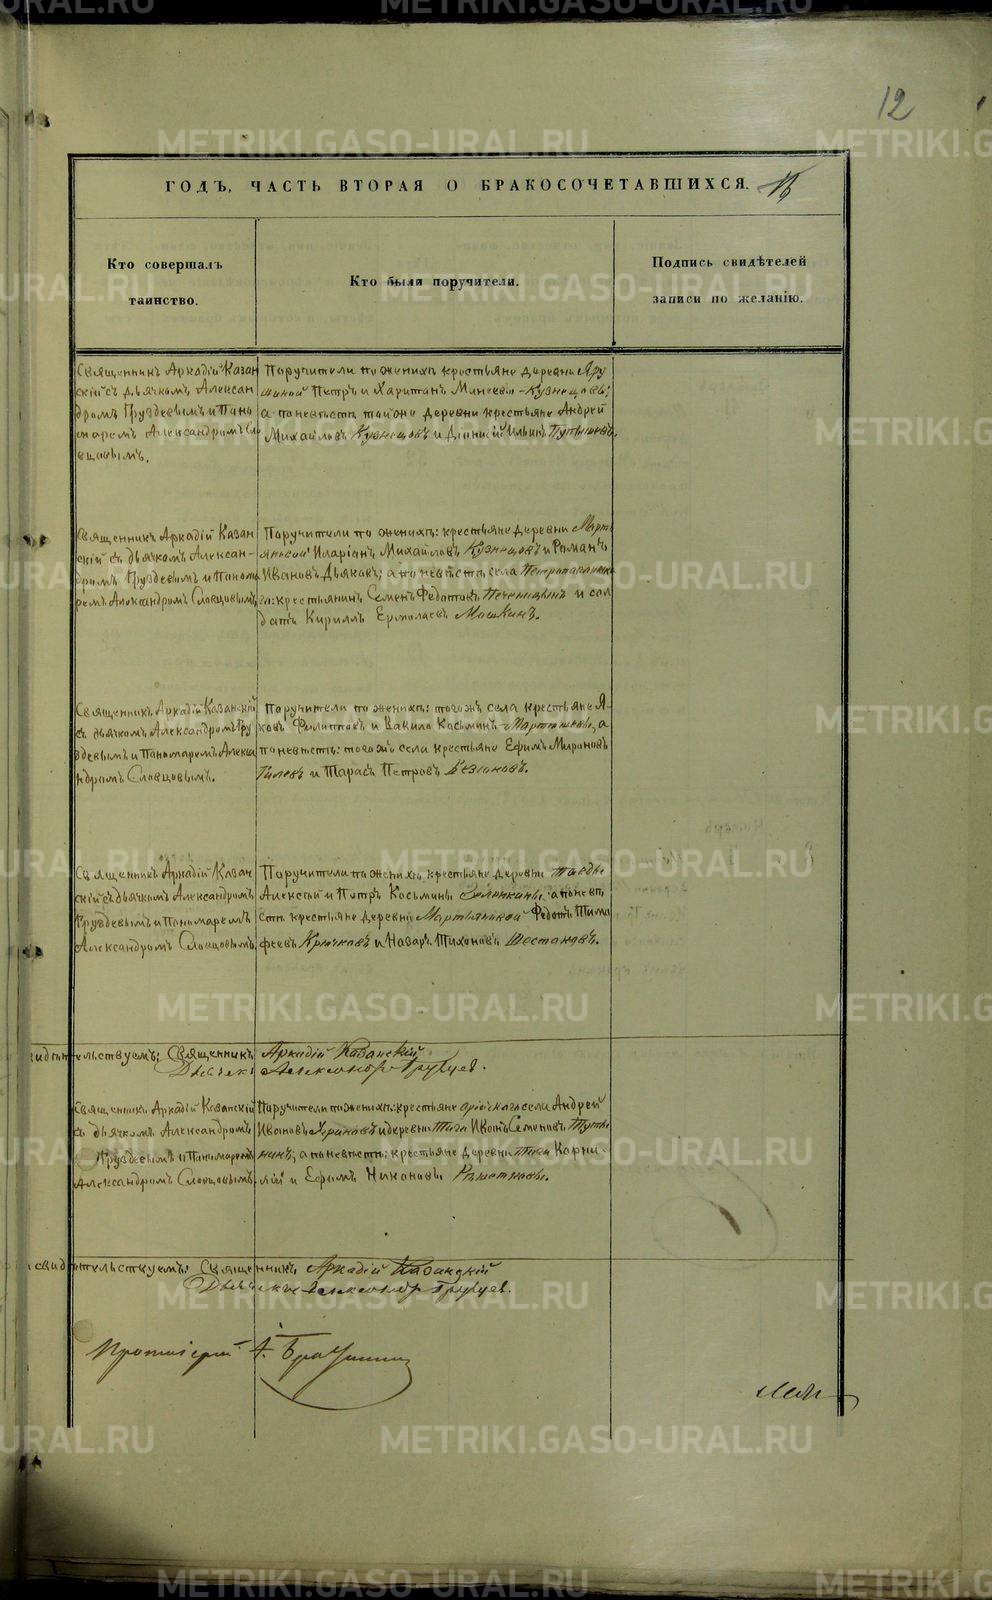 12
ГОДЪ, ЧАСТЬ ВТОРАЯ О БРАКОСОЧЕТАВШИХСЯ.
Кто совершалъ
таинство.
Кто были поручители.
Подпись свидѣтелей
записи по желанію.
Священникъ Аркадій Казан
скій съ дьячкомъ Алексан
дромъ Груздевымъ и Поно
маремъ Александромъ Сло
вцовымъ.
Поручители по женихѣ крестьяне деревни Яру
шиной Петръ и Харитонъ Минеевы Кузнецовы;
а по невѣстѣ той же деревни крестьяне Андрей
Михайловъ Кузнецовъ и Діонисій Ильинъ
Священникъ Аркадій Казан
скій съ дьячкомъ Алексан-
дромъ Груздевымъ и Поном
ремъ Александромъ Словцовымъ
Поручители по женихѣ: крестьяне деревни Марть
яновой Иларіонъ Михайловъ Кузнецовъ и Романъ
Ивановъ Дьяковъ; а по невѣстѣ села
крестьянинъ Семенъ Федотовъ Печеницынъ и сол
датъ Кириллъ Ермолаевъ Мошкинъ.
Священникъ Аркадій Казанскій
съ дьячкомъ Александромъ Гру
здевымъ и Пономаремъ Алекса
ндромъ Словцовымъ.
Поручители по женихѣ: тогожъ села крестьяне Я-
ковъ Филипповъ и Вавило Косьминъ Мартюшевы, а
по невѣстѣ: того же села крестьяне Ефимъ Мироновъ
Гилевъ и Тарасъ Петровъ
Священникъ Аркадій Казан
скій съ дьячкомъ Александромъ
Груздевымъ и Пономаремъ
Александромъ Словцовымъ.
Поручители по женихѣ крестьяне деревни
Алексѣй и Петръ Косьмины а по невѣ
стѣ крестьяне деревни Мартьяновой Федотъ Тимо
феевъ Крючковъ и Назаръ Тихоновъ Шестаковъ.
свидѣтельствуемъ: Священникъ Аркадій Казанскій
Дьячекъ Александръ Груздевъ.
Священникъ Аркадій Казанскій
съ дьячкомъ Александромъ
Груздевымъ и Пономаремъ
Александромъ Словцовымъ.
Поручители по женихѣ: крестьяне села Андрей
Ивановъ и деревни Иванъ Семеновъ
а по невѣстѣ: крестьяне деревни Корни-
лій и Ефимъ Никоновы Рѣшетковы.
свидѣтельствуемъ: Священникъ Аркадій Казанскій
Дьячекъ Александръ Груздевъ.
Протоіерей А.
METRIKI.GASO-URAL.RU